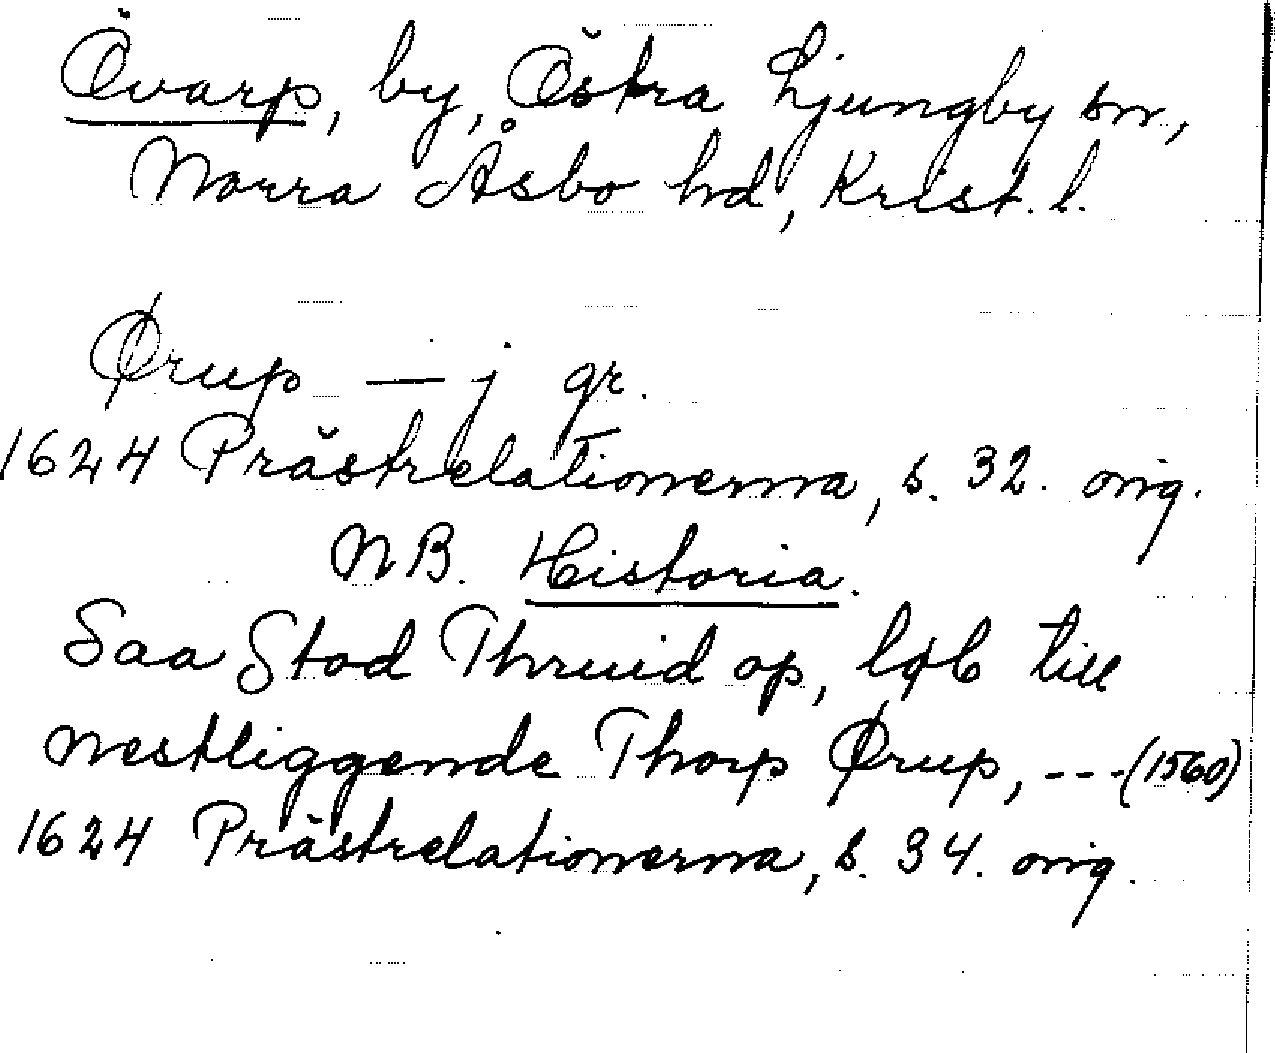 Övarp, by, Östra Ljungby sn,
Norra Åsbo hd, Krist. l.
Ørup — j gr.
1624 Prästrelationerna, s. 32. orig.
NB. Historia.
Saa Stod Thruid op, løb till
nestliggende Thorp Ørup, ---(1560)
1624 Prästrelationerna, s. 34. orig.